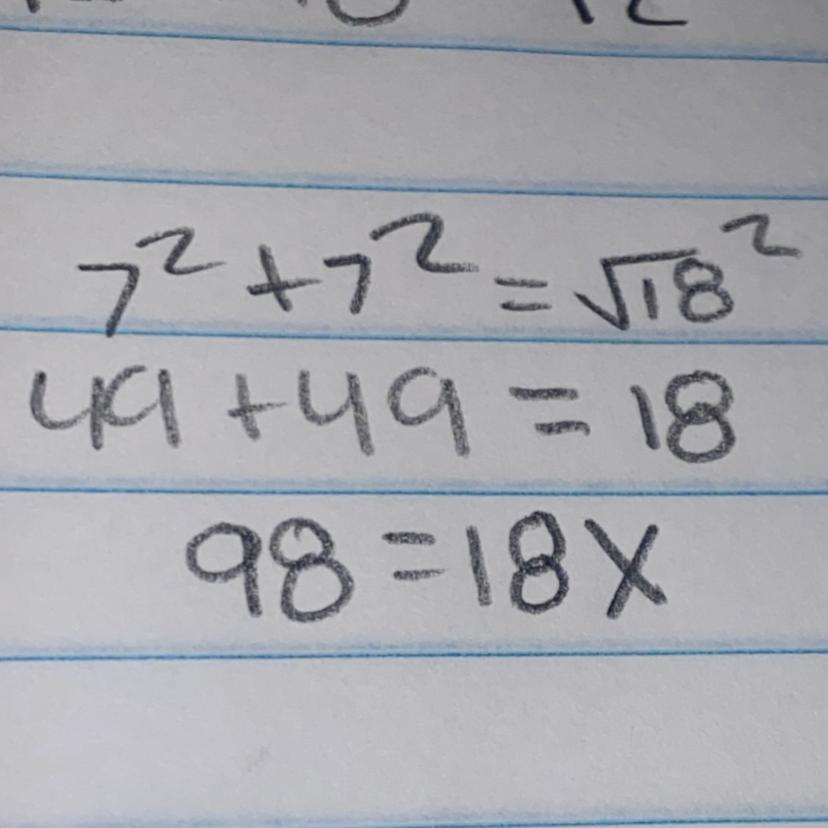 7² + 7² = √18²
49 + 49 = 18
98 = 18 X